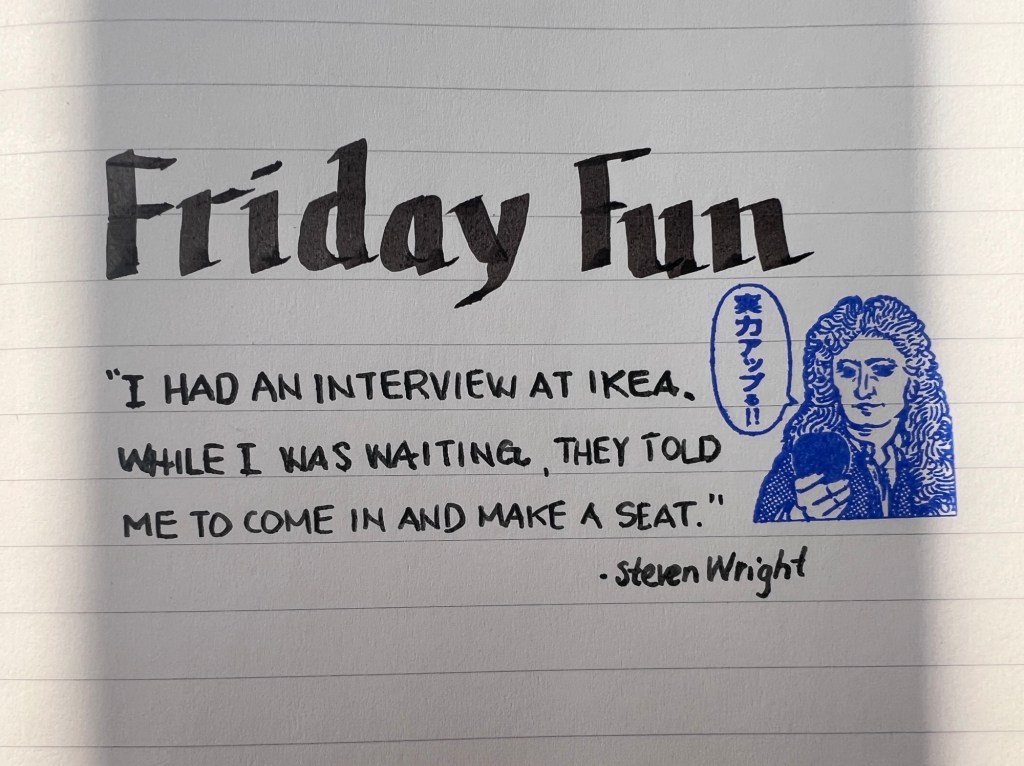 Friday Fun
実力アップ!!
"I HAD AN INTERVIEW AT IKEA.
WHILE I WAS WAITING, THEY TOLD
ME TO COME IN AND MAKE A SEAT."
· Steven Wright